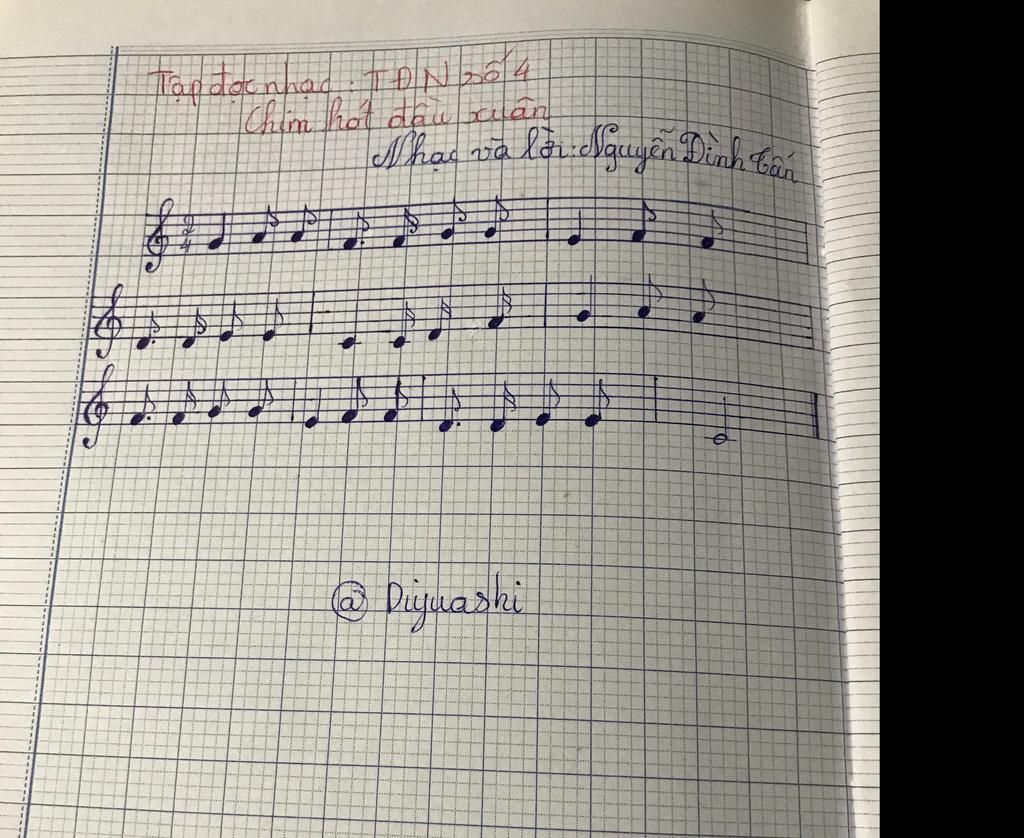 Tập đọc nhạc: TĐN số 4
Chim hót đầu xuân
Nhạc và lời: Nguyễn Đình Tấn
2
4
@ Diyuashi